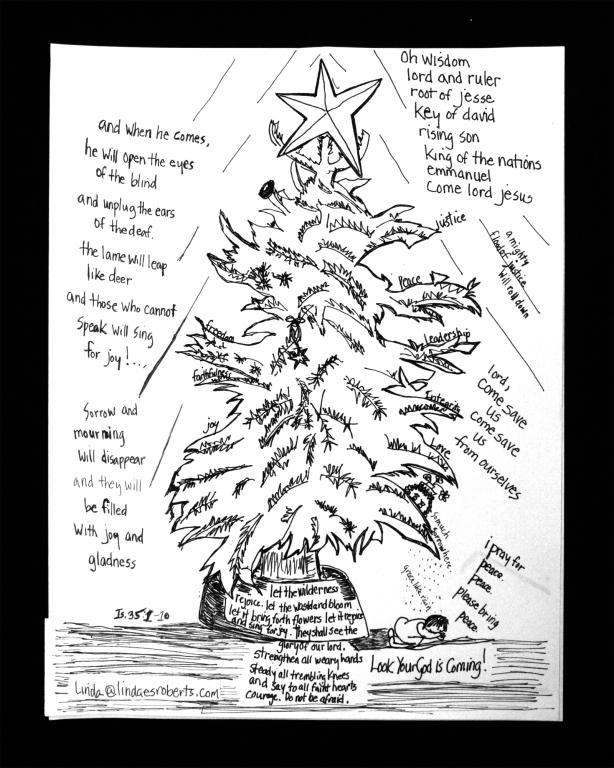 Oh Wisdom
lord and ruler
root of jesse
key of david
rising son
King of the nations
emmanuel
Come lord jesus
and when he comes,
he will open the eyes
of the blind
and unplug the ears
of the deaf.
the lame will leap
like deer
and those who cannot
speak will sing
for joy!...
Sorrow and
mourning
will disappear
and they will
be filled
with joy and
gladness
Is. 35 1-10
justice
Peace
Leadership
Integrity
Love
freedom
faithfulness
joy
a mighty
flow of justice
will roll down
lord,
come save
us
come save
us
from ourselves
so much
sorrow here
grace like rain
i pray for
peace.
peace.
please bring
peace.
Look Your God is Coming!
let the wilderness
rejoice. let the wasteland bloom
let it bring forth flowers let it rejoice
and sing for joy. They shall see the
glory of our lord.
strengthen all weary hands
Steady all trembling knees
and say to all faint hearts
courage. Do not be afraid.
Linda@lindaesroberts.com